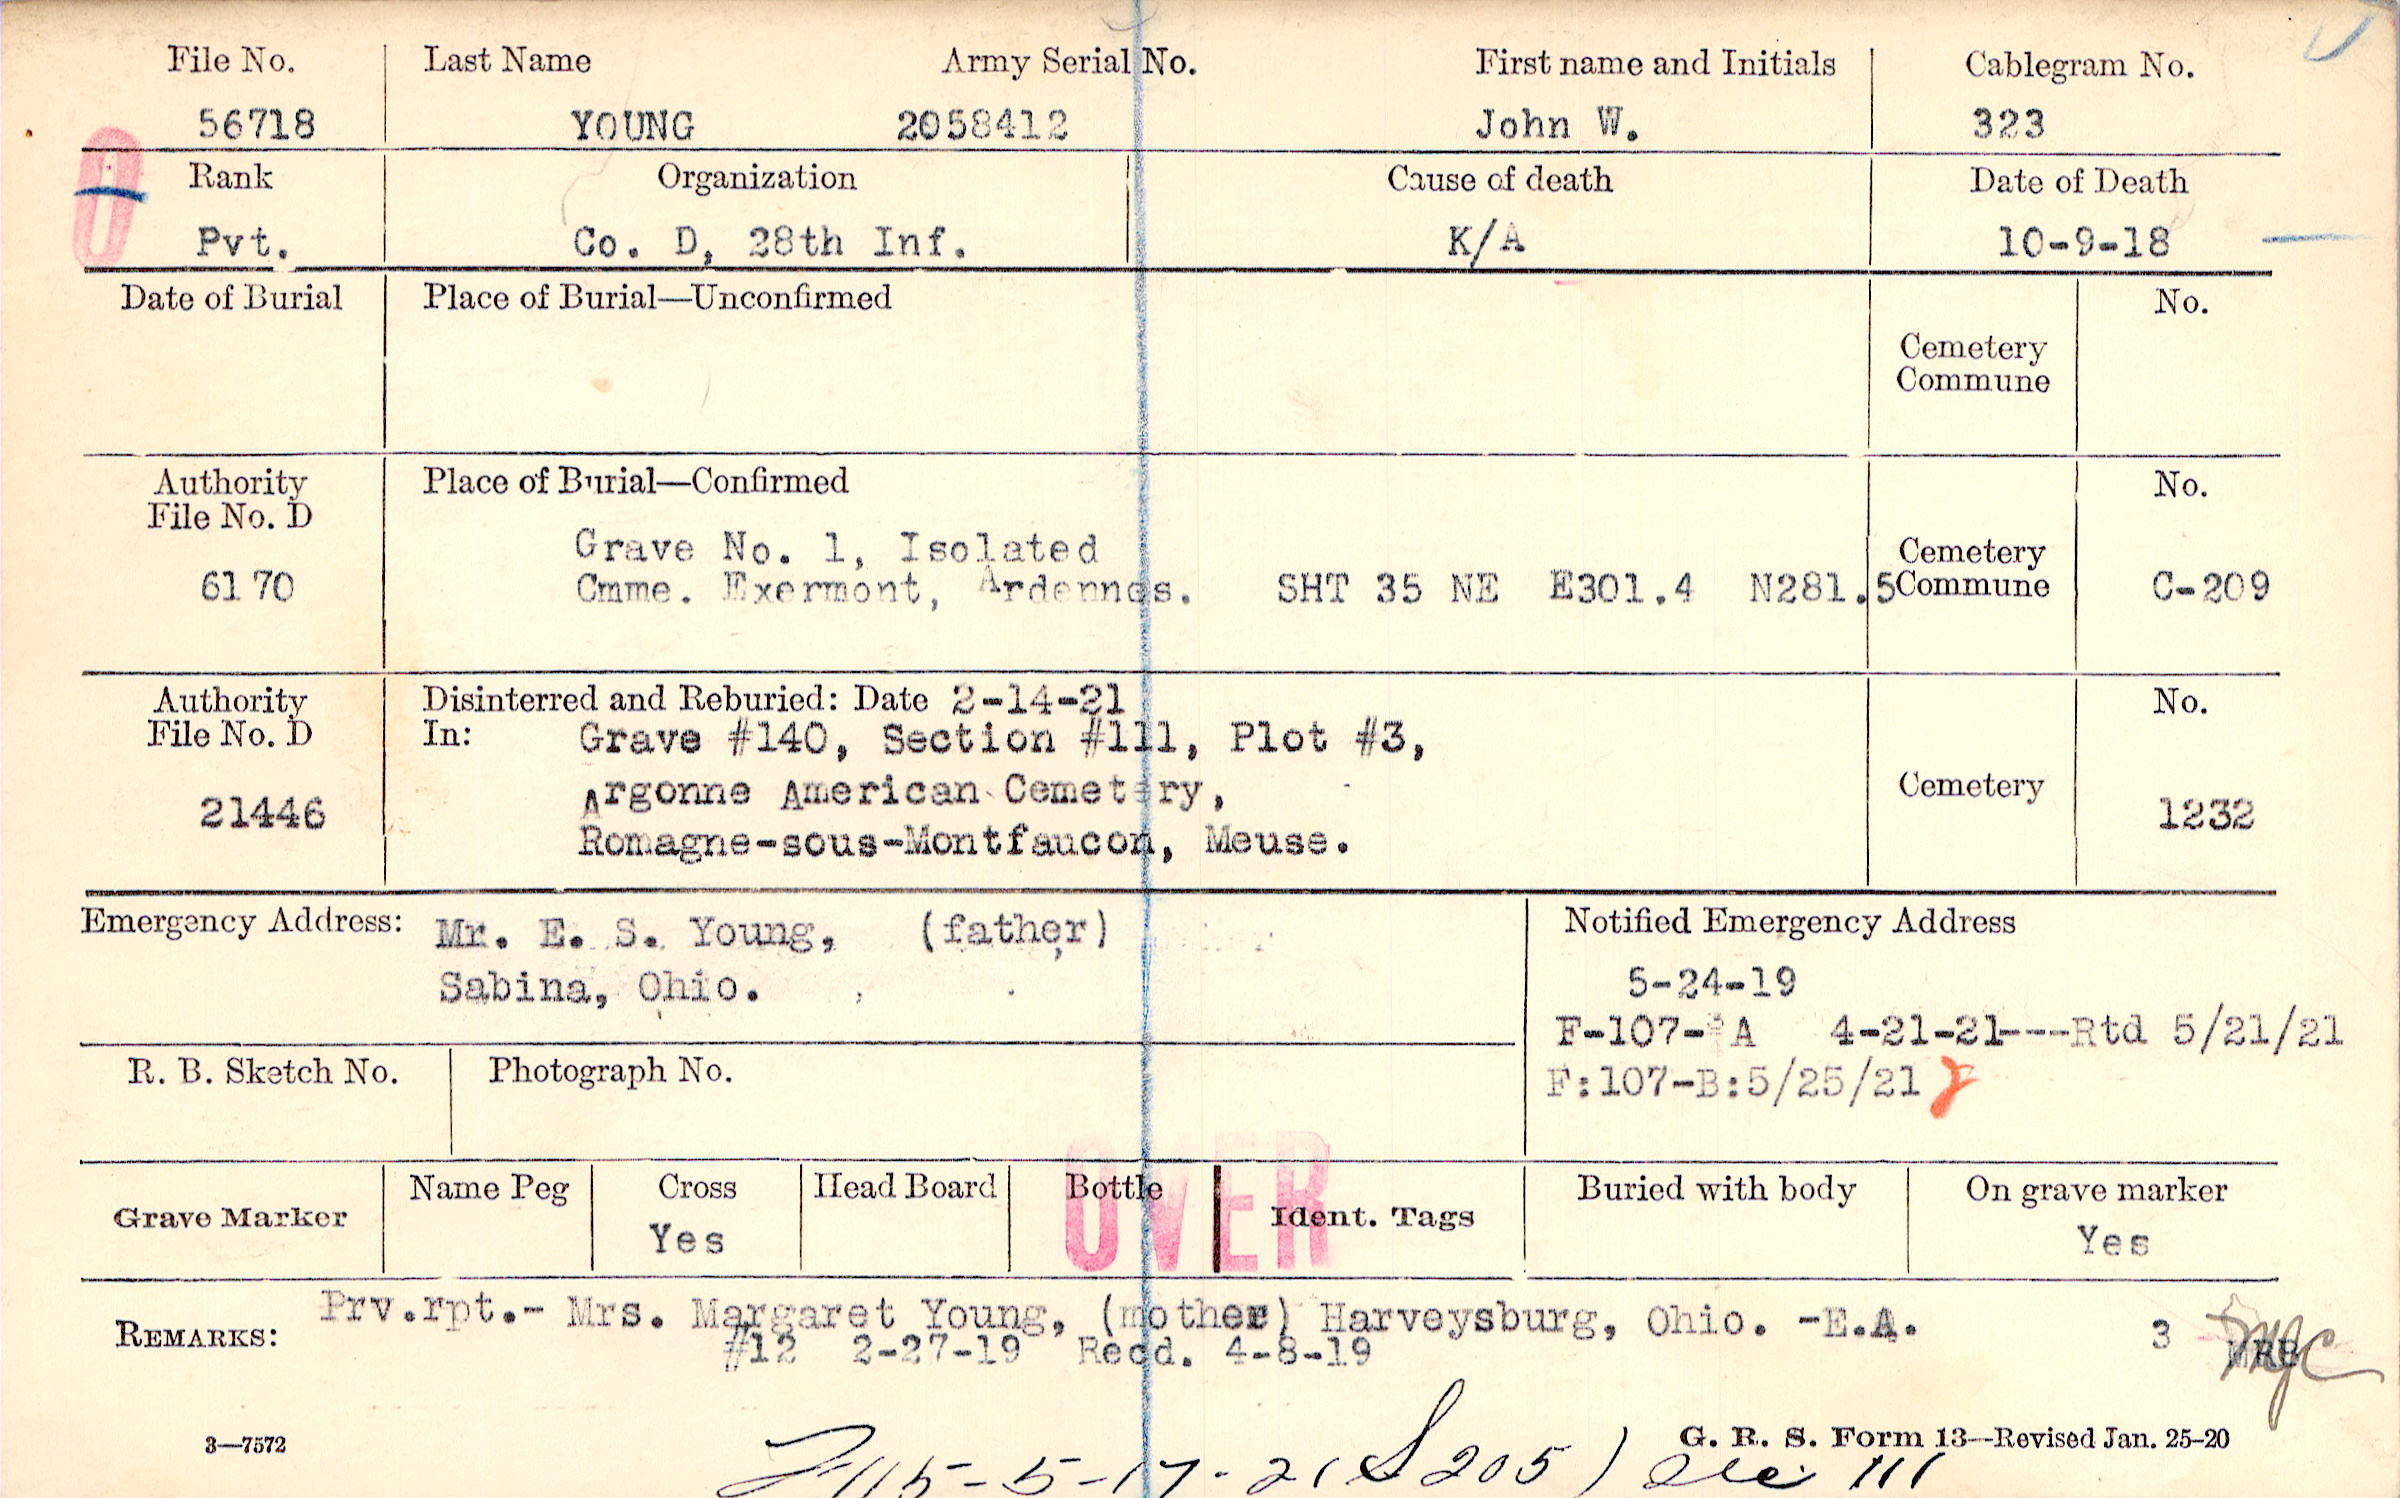 File No. Last Name Army Serial No. First name and Initials Cablegram No.
56718 YOUNG 2058412 John W. 323
Rank Organization Cause of death Date of Death
Pvt. Co. D, 28th Inf. K/A 10-9-18
Date of Burial Place of Burial—Unconfirmed No.
Cemetery
Commune
Authority Place of Burial—Confirmed No.
File No. D
Grave No. 1, Isolated Cemetery
6170 Cmme. Exermont, Ardennes. SHT 35 NE E301.4 N281.5 Commune C-209
Authority Disinterred and Reburied: Date 2-14-21 No.
File No. D In: Grave #140, Section #111, Plot #3,
Argonne American Cemetery, Cemetery
21446 1232
Romagne-sous-Montfaucon, Meuse.
Emergency Address: Mr. E. S. Young, (father) Notified Emergency Address
Sabina, Ohio. 5-24-19
F-107- A 4-21-21---Rtd 5/21/21
R. B. Sketch No. Photograph No. F:107-B:5/25/21
OVER
Grave Marker Name Peg Cross Head Board Bottle Ident. Tags Buried with body On grave marker
Yes Yes
REMARKS: Prv.rpt.- Mrs. Margaret Young, (mother) Harveysburg, Ohio. -E.A. 3
#12 2-27-19 Recd. 4-8-19
3—7572 G. R. S. Form 13—Revised Jan. 25-20
115-5-17-21 S 205) 111